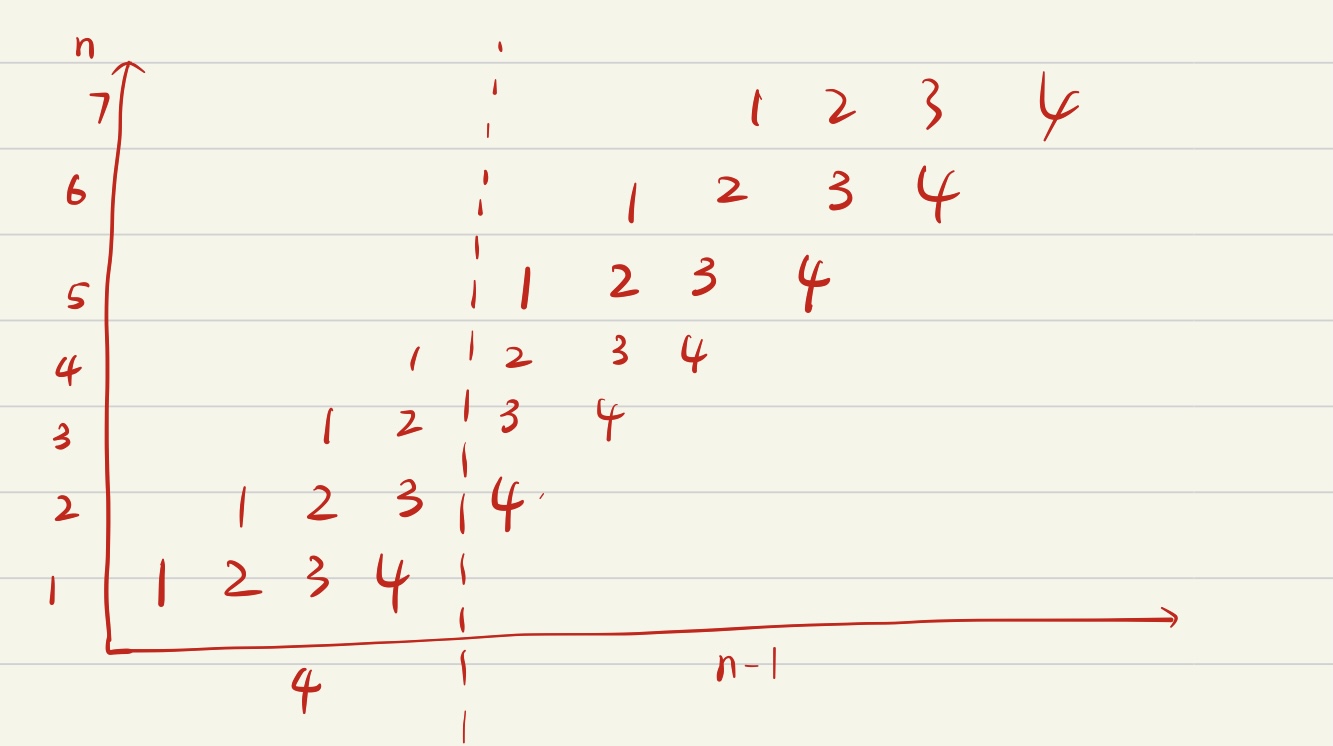 n
7 1 2 3 4
6 1 2 3 4
5 1 2 3 4
4 1 2 3 4
3 1 2 3 4
2 1 2 3 4
1 1 2 3 4
4 n-1